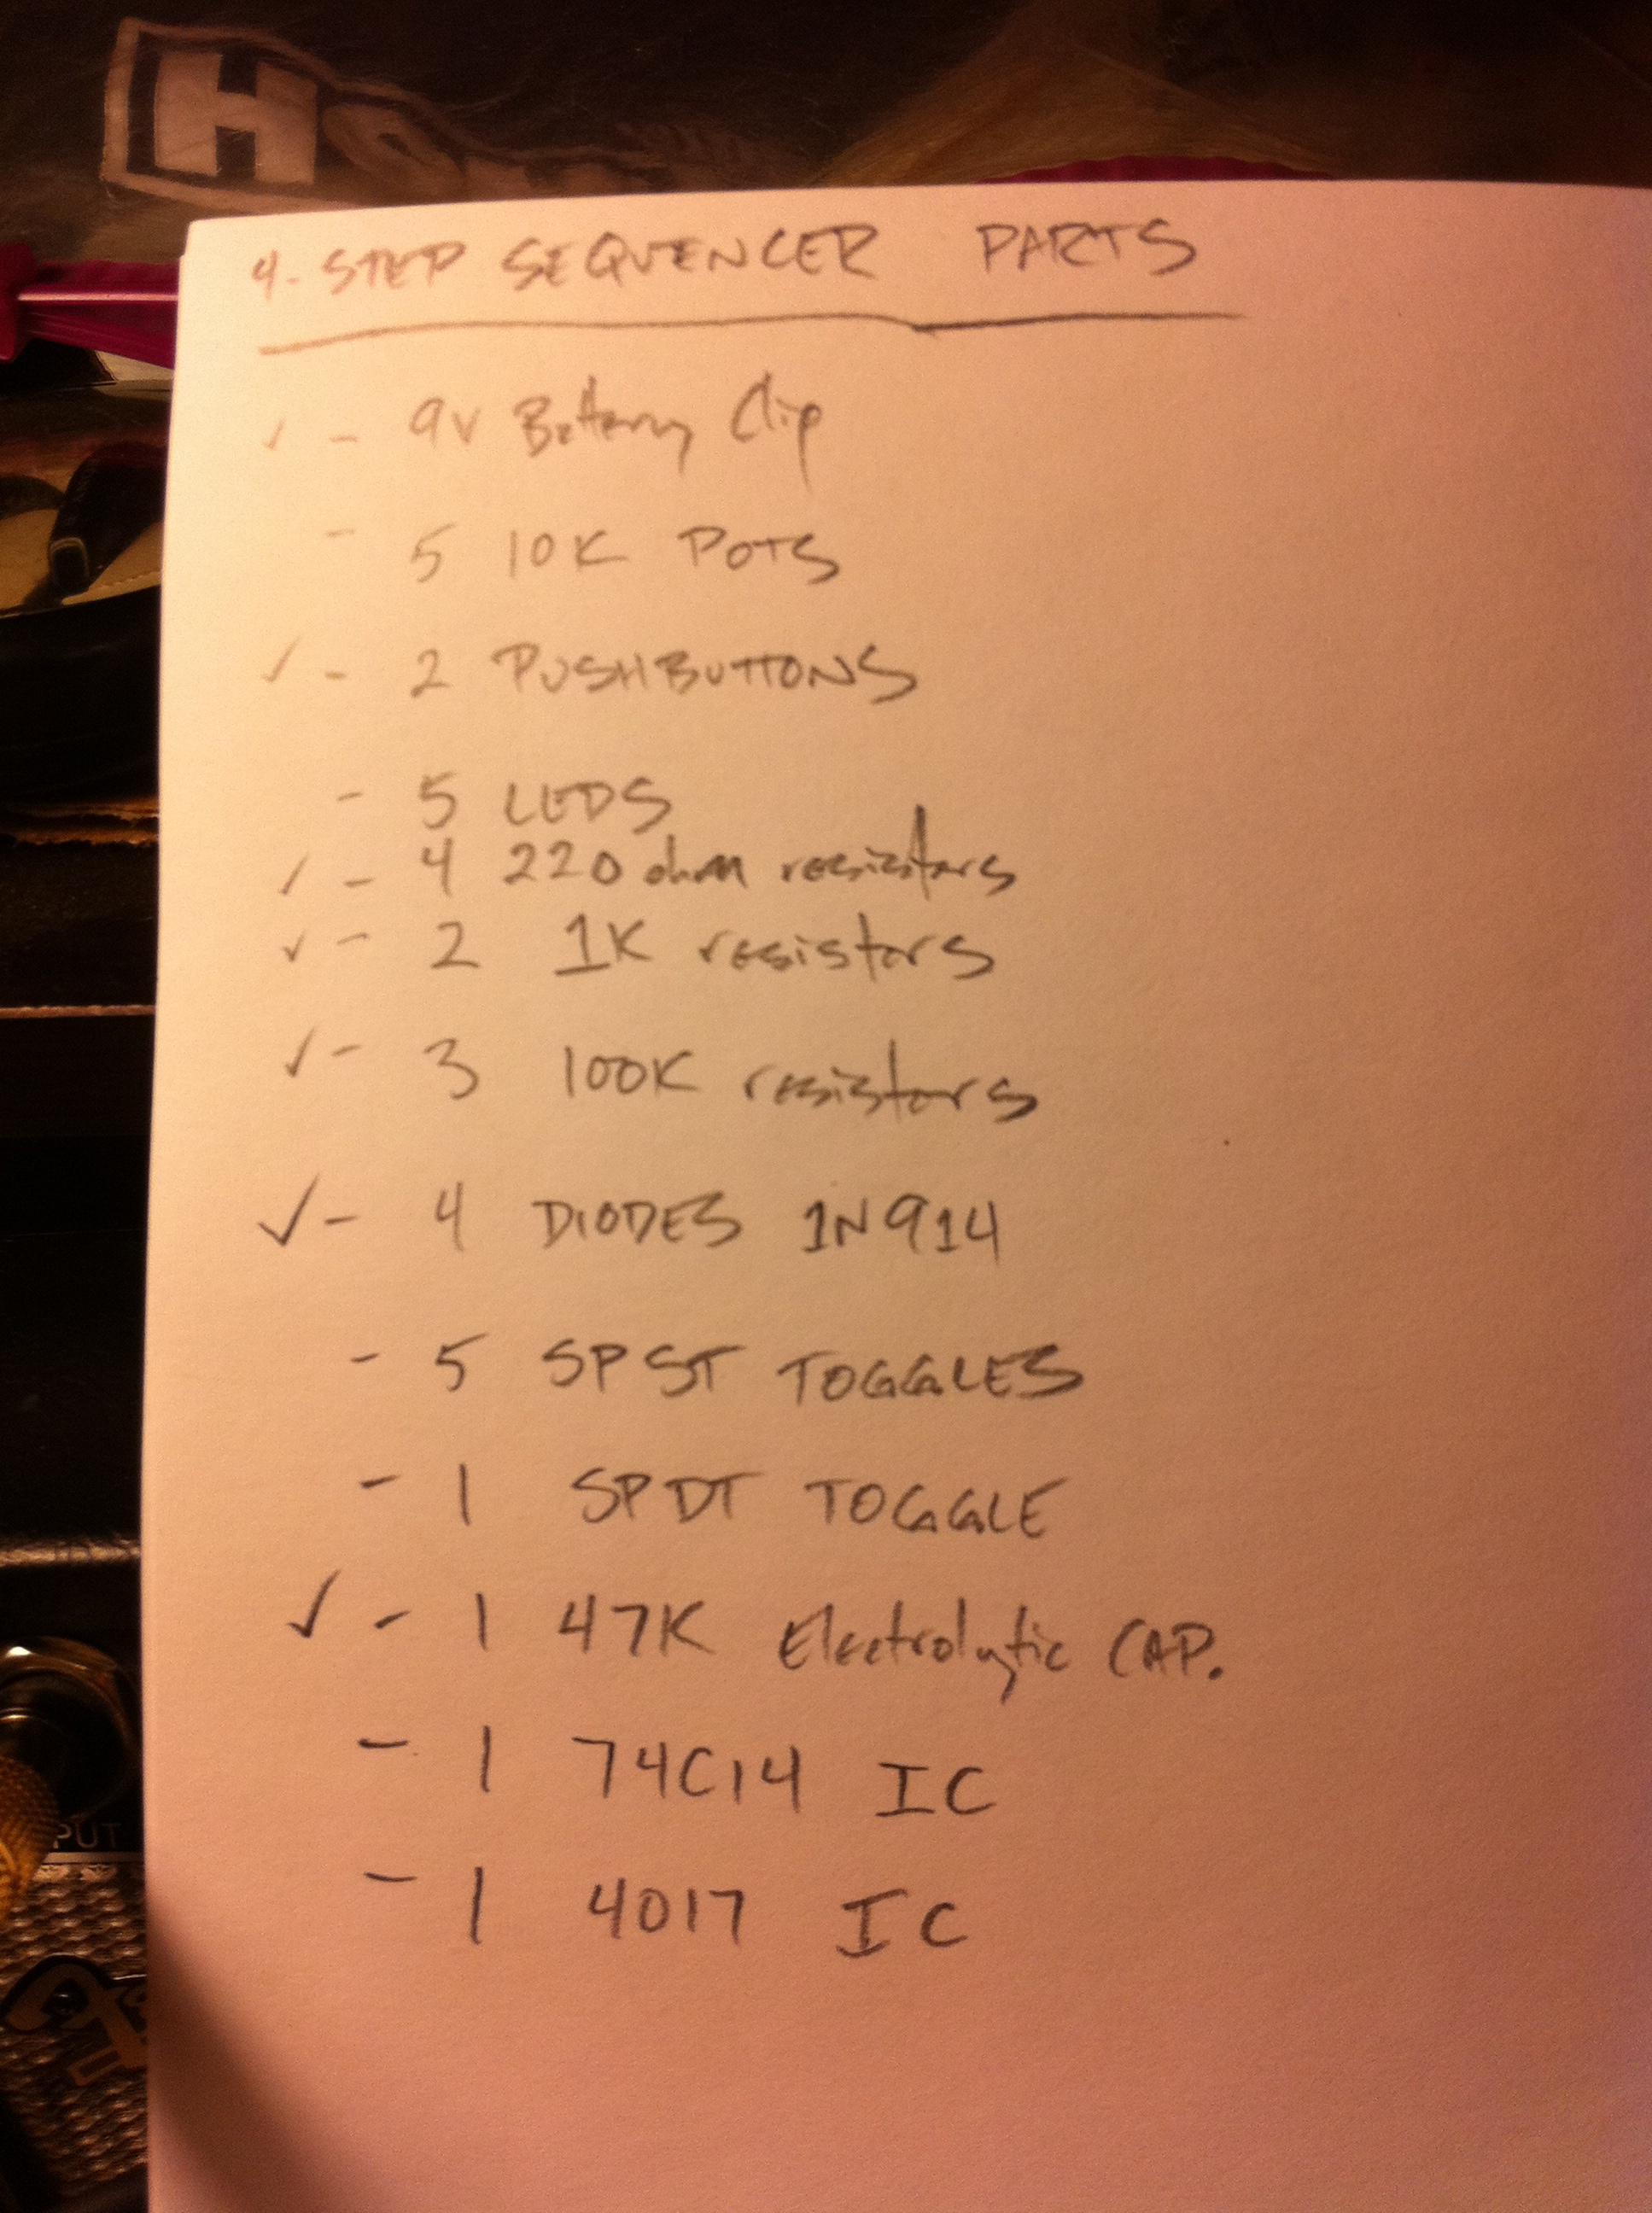 4-STEP SEQUENCER PARTS
✓ - 9V Battery Clip
- 5 10K POTS
✓ - 2 PUSHBUTTONS
- 5 LEDS
✓ - 4 220 ohm resistors
✓ - 2 1K resistors
✓ - 3 100K resistors
✓ - 4 DIODES 1N914
- 5 SPST TOGGLES
- 1 SPDT TOGGLE
✓ - 1 47K Electrolytic CAP.
- 1 74C14 IC
- 1 4017 IC
PUT